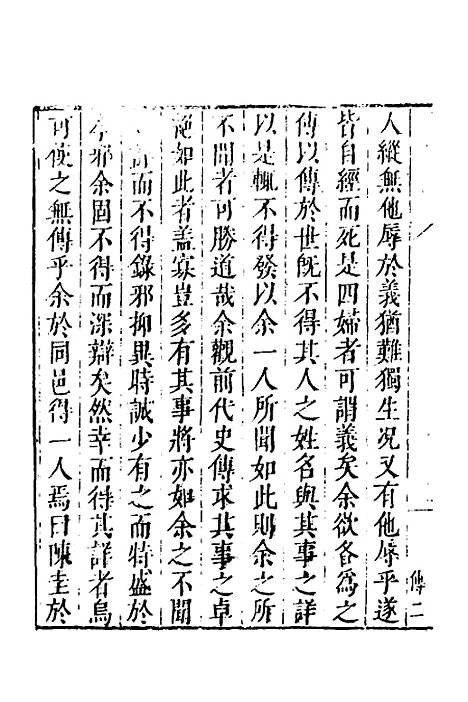 傳二
人縱無他辱於義猶難獨生况又有他辱乎遂
皆自經而死是四婦者可謂義矣余欲各爲之
傳以傳於世旣不得其人之姓名與其事之詳
以是輒不得發以余一人所聞如此則余之所
不聞者可勝道哉余觀前代史傳求其事之卓
絶如此者盖寡豈多有其事將亦如余之不聞
詳而不得錄邪抑異時誠少有之而特盛於
今邪余固不得而深辯矣然幸而得其詳者烏
可使之無傳乎余於同邑得一人焉曰陳圭於